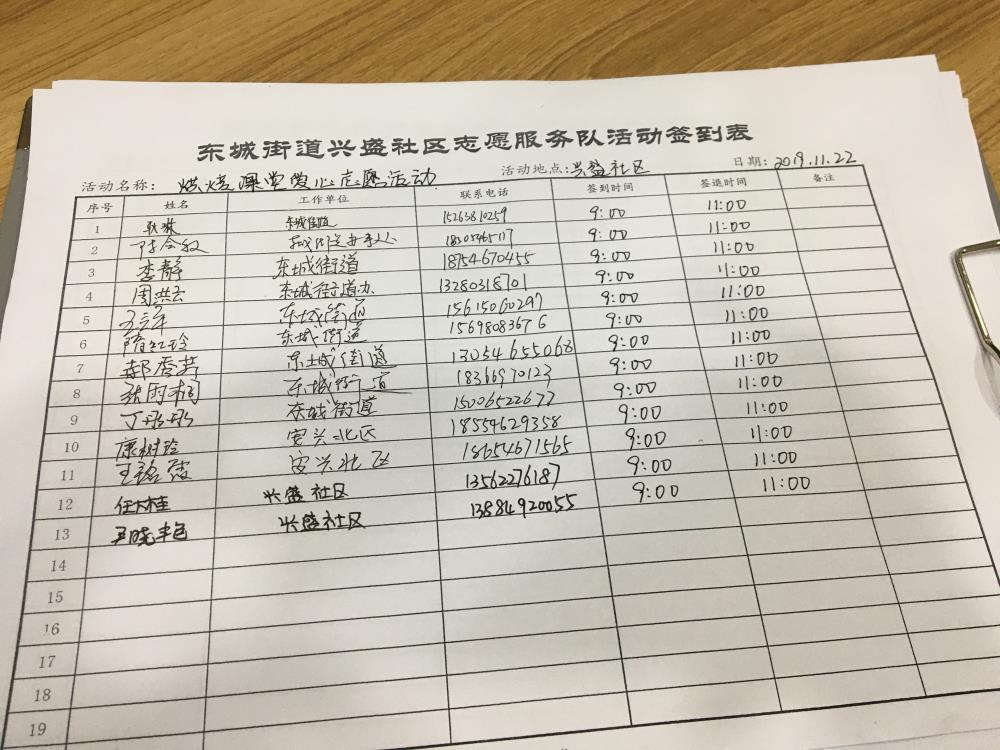 东城街道兴盛社区志愿服务队活动签到表
活动名称: 烘焙课堂爱心志愿活动 活动地点: 兴盛社区 日期: 2019.11.22
序号 姓名 工作单位 联系电话 签到时间 签退时间 备注
1 耿琳 东城街道 15263810259 9:00 11:00
2 东城街道办事处 18305465117 9:00 11:00
3 李静 东城街道 18754670455 9:00 11:00
4 周洪云 东城街道办 13280318701 9:00 11:00
5 东城街道 15615060297 9:00 11:00
6 隋红玲 东城街道 15698083676 9:00 11:00
7 郝秀芹 东城街道 13054655068 9:00 11:00
8 张雨桐 东城街道 18366970123 9:00 11:00
9 丁彤彤 东城街道 15006522677 9:00 11:00
10 康树玲 安兴北区 18554629358 9:00 11:00
11 安兴北区 18654671565 9:00 11:00
12 任大桂 兴盛社区 13562276187 9:00 11:00
13 尹晓丰 兴盛社区 13884920055 9:00 11:00
14
15
16
17
18
19